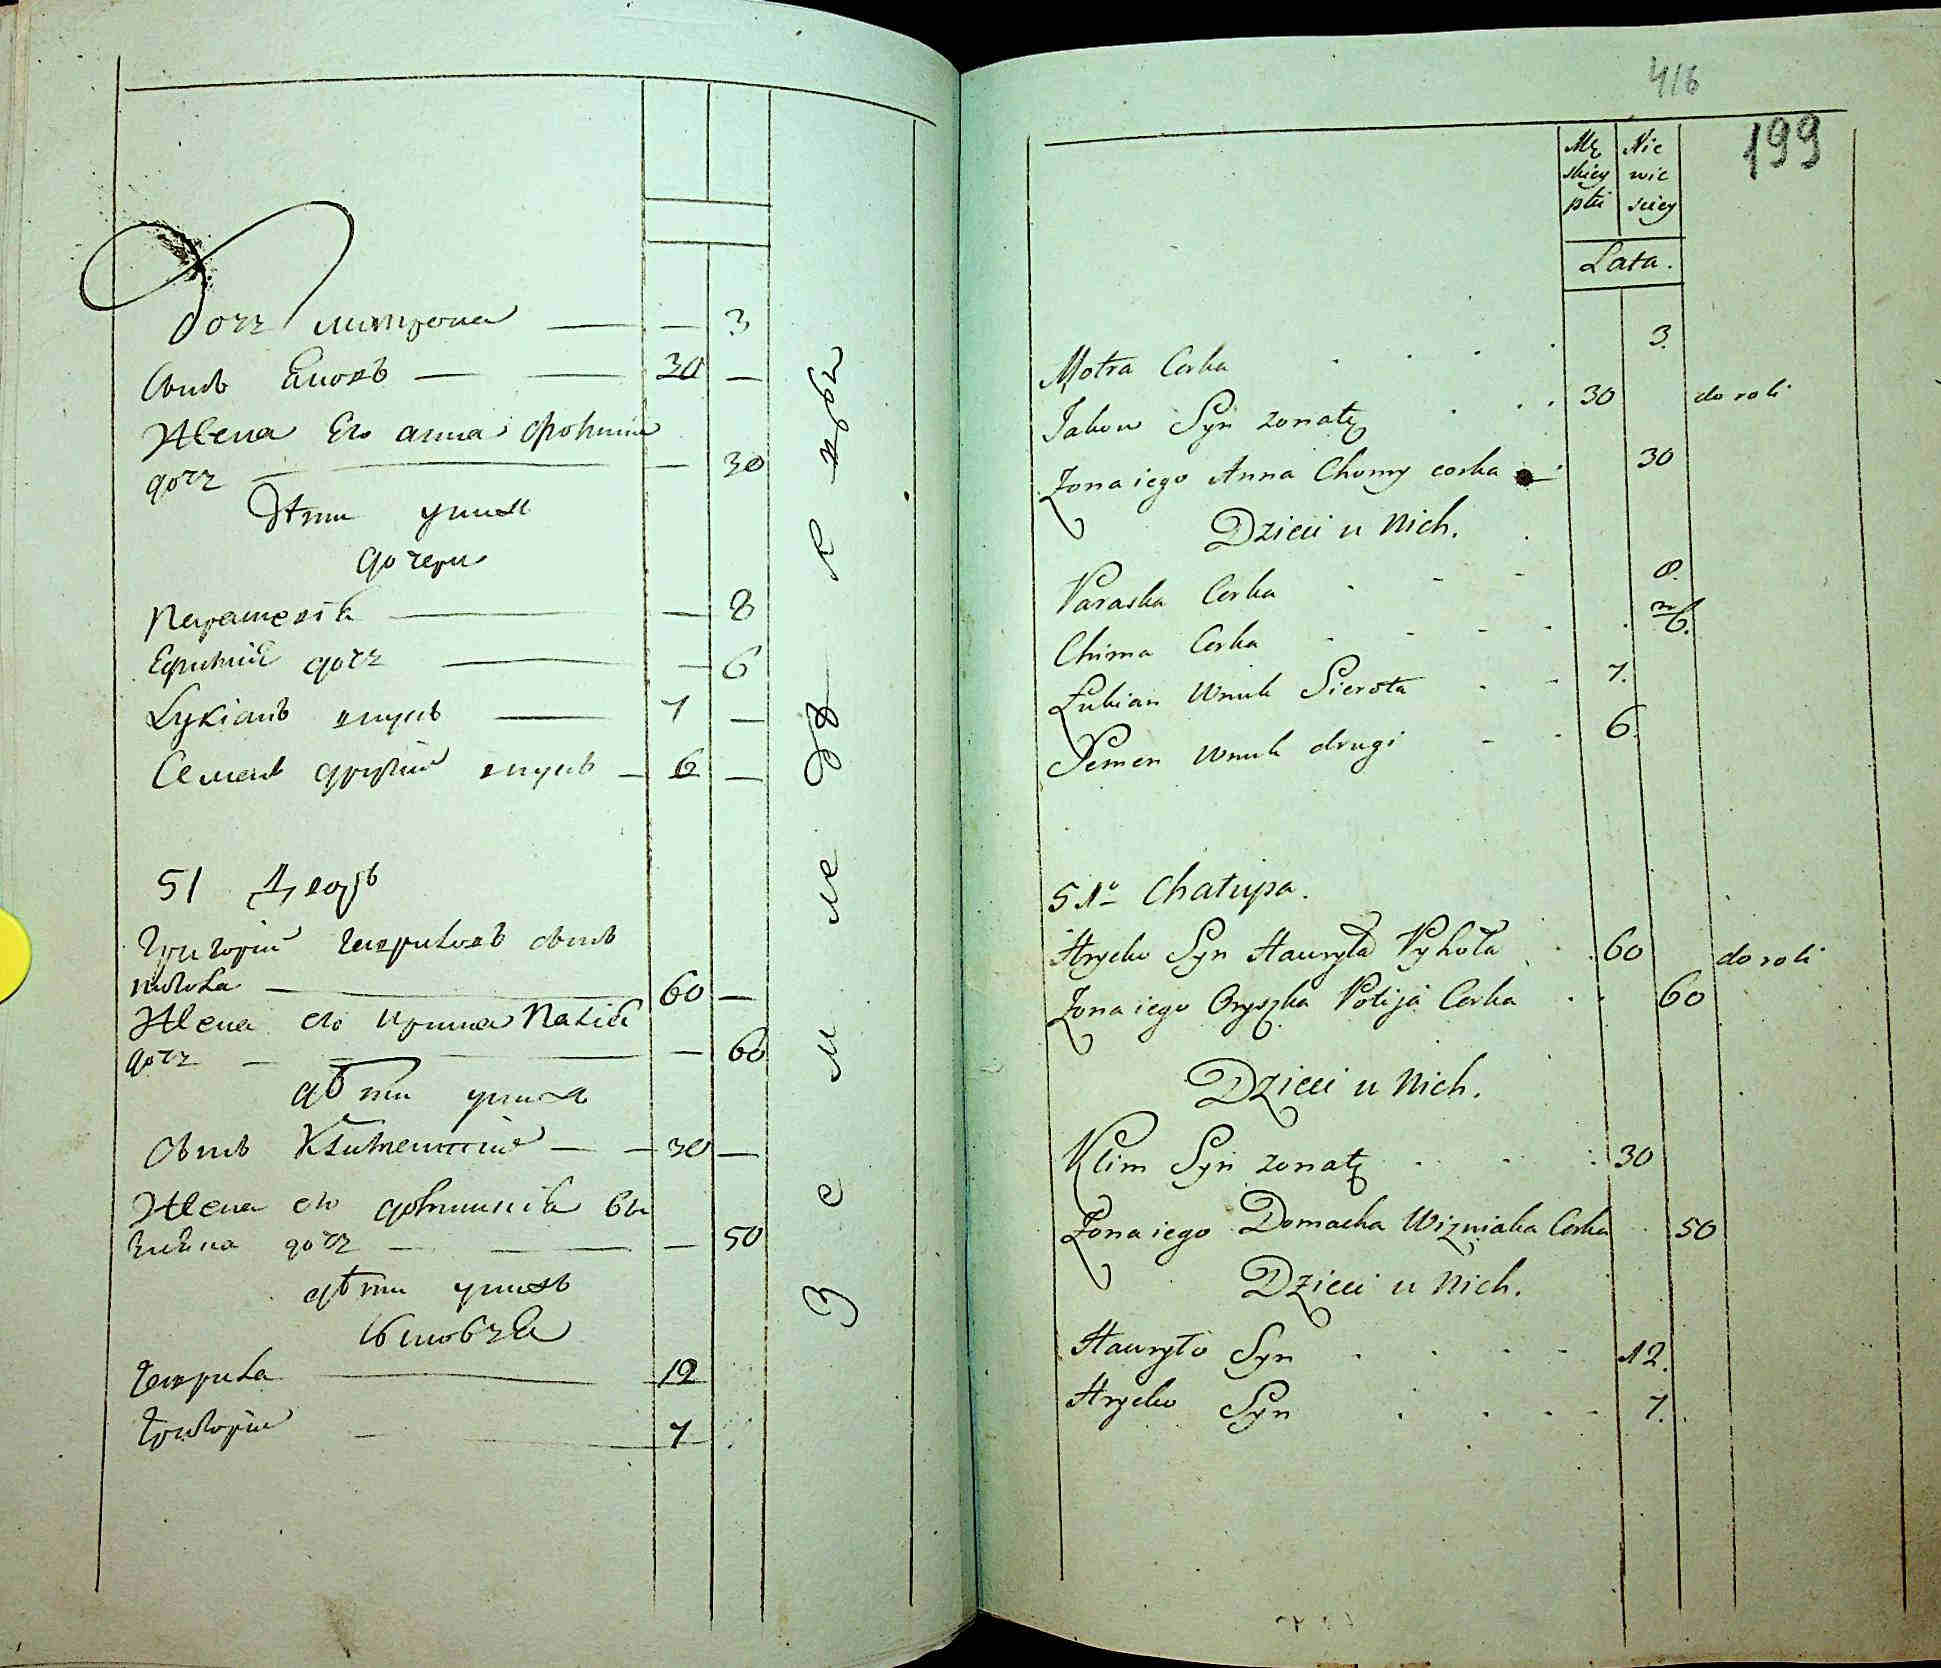 дочь митрона — — 3
сынъ Яковъ — — 30 —
Жена Его анна фомина
дочь — — 30
дѣти у нихъ
дочери
Парасковія — — 8
Ефимія дочь — — 6
Лукіанъ внукъ — 7 —
Семенъ другій внукъ — 6 —
51 Дворъ
Григорій гавриловъ сынъ
— 60 —
Жена его ирина Паліѧ
дочь — — 60
дѣти у нихъ
сынъ Климентій — — 30 —
Жена его домникія
дочь — — 50
дѣти у нихъ
сыновья
гаврила — 12
Григорій — 7
416
199
Mę Nie
skiey wie
płci sciey
Lata.
Motra Corka 3.
Jakow Syn zonatÿ 30 do roli
Zona iego Anna Chomy corka 30
Dzieci u Nich.
Paraska Corka 8.
Chima Corka 6.
Łukian Wnuk Sierota 7.
Semen Wnuk drugi 6.
51o Chałupa.
Hryćko Syn Hawryła Pykoła 60 do roli
Zona iego Oryszka Palija Corka 60
Dzieci u Nich.
Klim Syn zonaty 30
Zona iego Domacha Wizniaka Corka 50
Dzieci u Nich.
Hawryło Syn 12.
Hryćko Syn 7.